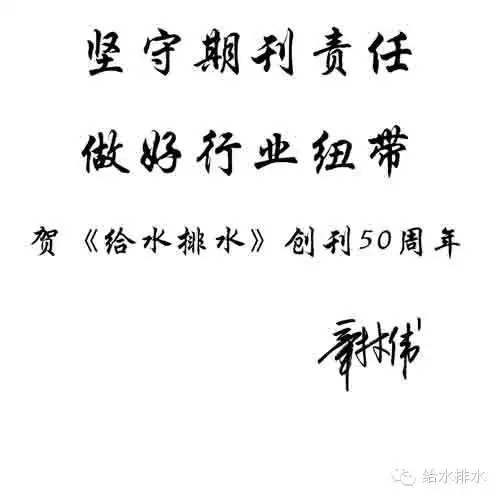 坚守期刊责任
做好行业纽带
贺《给水排水》创刊50周年
给水排水